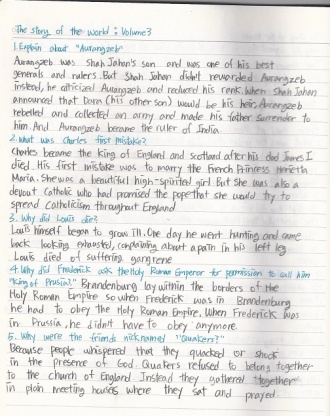 The story of the world : Volume3
1. Explain about "Aurangzeb"
Aurangzeb was Shah Jahan's son and was one of his best
generals and rulers. But Shah Jahan didn't rewarded Aurangzeb
instead, he criticized Aurangzeb and reduced his ranks. When Shah Jahan
announced that Dara (his other son) would be his heir, Aurangzeb
rebelled and collected an army and made his father surrender to
him And Aurangzeb became the ruler of India
2. What was Charles first mistake?
Charles became the king of England and scotland after his dad James I
died. His first mistake was to marry the French Princess Henrietta
Maria. She was a beautiful high-spirited girl But She was also a
devout Catholic who had promised the pope that she would try to
spread Catholicism throughout England
3. Why did Louis die?
Louis himself began to grow ill. One day he went hunting and came
back looking exhausted, complaining about a pain in his left leg
Louis died of suffering gangrene
4. Why did Frederick ask the Holy Roman Emperor for permission to call him
"King of Prussia?" Brandenburg lay within the borders of the
Holy Roman Empire so when Frederick was in Brandenburg
he had to obey the Holy Roman Empire. When Frederick was
in Prussia, he didn't have to obey anymore.
5. Why were the friends nicknamed "Quakers?"
Because people whispered that they quacked or shook
in the presence of God. Quakers refused to belong together
to the church of England Instead they gathered together
in plain meeting houses where they sat and prayed